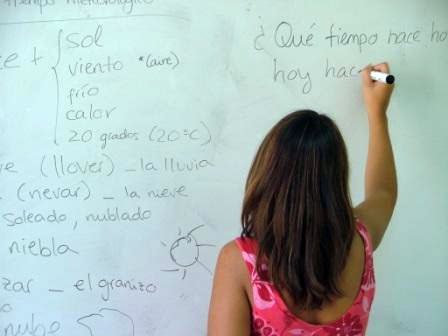 tiempo meteorológico
+ { sol
viento *(aire)
frío
calor
20 grados (20ºC)
(llover) _ la lluvia
(nevar) _ la nieve
soleado, nublado
niebla
zar _ el granizo
nube
¿Qué tiempo hace ho
hoy hac